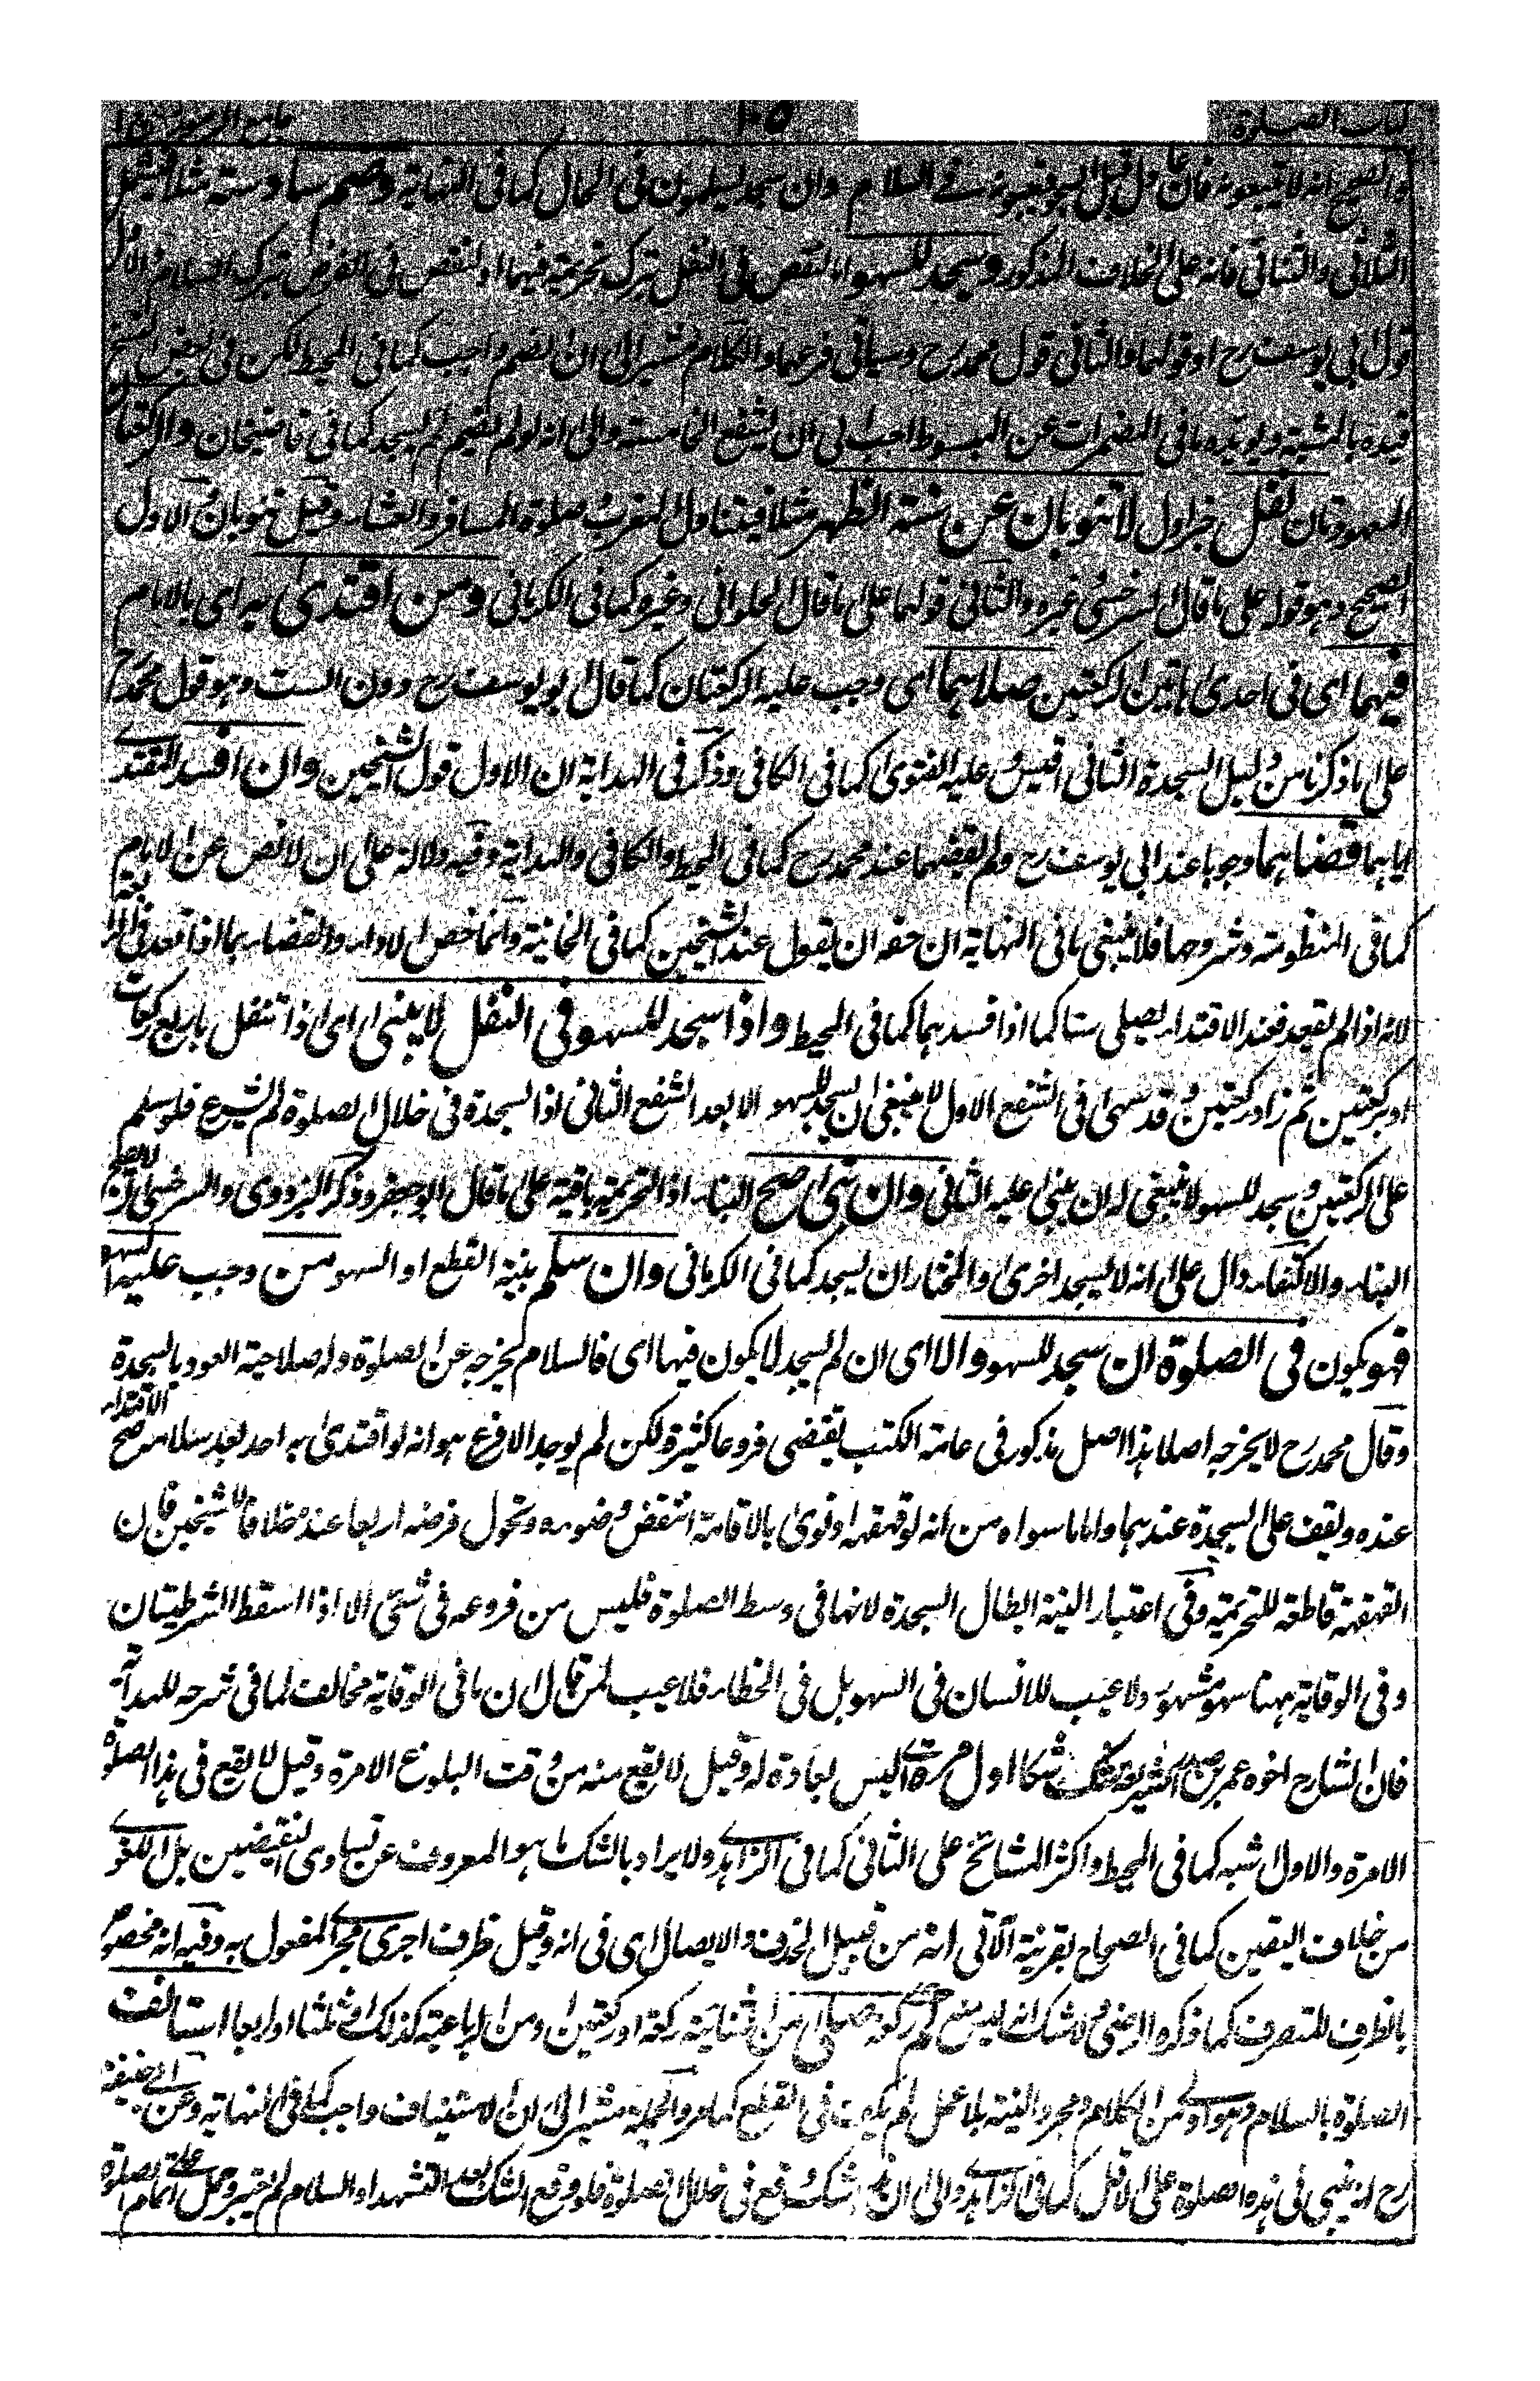 كتاب الصلوة ١٠٥ جامع الرموز
والصحيح انه لا يتبعونه فان قبل فيتبعونه في السلام وان سجد يسلمون في الحال كما في النهاية وضم سادسة مثلا فيشمل
الثلاثي والثنائي فانه على الخلاف المذكور وسجد للسهو اما لنقص في النفل بترك تحريمة فيها او لنقص في الفرض بترك السلام والاول
قول ابي يوسف رح او قولهما والثاني قول محمد رح وسياتي فرعهما والكلام مشير الى ان الضم واجب كما في المحيط لكن في بعض النسخ
قيده بالمشية ويؤيده ما في المضمرات عن المبسوط احب الي ان يشفع الخامسة والى انه لو لم يضم لم يسجد كما في قاضيخان والركعتان
السهويتان نفل خبر اول لا تنوبان عن سنة الظهر مثلا فيتناول المغرب وصلوة المسافر والعشاء وقيل تنوبان والاول
الصحيح وهو قوله على ما قال السرخسي وغيره والثاني قولهما على ما قال الحلواني وغيره كما في الكرماني ومن اقتدى به اي بالامام
فيهما اي في احدى هاتين الركعتين صلاهما اي وجب عليه الركعتان كما قال ابو يوسف رح دون الست وهو قول محمد رح
على ما ذكرنا من دليل السجدة الثاني اقيس وعليه الفتوى كما في الكافي وذكر في الهداية ان الاول قول الشيخين وان افسد المقتدي
اياهما قضاهما وجوبا عند ابي يوسف رح ولم يقضهما عند محمد رح كما في المحيط والكافي والهداية وفيه دلالة على ان لا نص عن الامام
كما في المنظومة وشروحها فلا ينبغي ما في النهاية ان حقه ان يقول عند الشيخين كما في الخانية وانما خص الاداء والقضاء بما اذا قعد في الرابعة
لانه اذا لم يقعد فعند الاقتداء يصلي ستا كما اذا افسدهما كما في المحيط واذا سجد للسهو في النفل لا يبني اي اذا تنفل باربع ركعات
او بركعتين ثم زاد ركعتين وقد سهى في الشفع الاول لا ينبغي ان يسجد للسهو الا بعد الشفع الثاني اذ السجدة في خلال الصلوة لم يشرع فلو سلم
على الركعتين وسجد للسهو لا ينبغي ان يبني عليه الثاني وان بنى صح البناء اذ التحريمة باقية على ما قال ابو جعفر وذكر البزدوي والسرخسي ان الاصح
البناء والاكتفاء دال على انه لا يسجد اخرى والمختار ان يسجد كما في الكرماني وان سلم بنية القطع او السهو من وجب عليه السهو
فهو يكون في الصلوة ان سجد للسهو والا اي ان لم يسجد لا يكون فيها اي فالسلام يخرجه عن الصلوة وله صلاحية العود بالسجدة
وقال محمد رح لا يخرجه اصلا هذا اصل مذكور في عامة الكتب يقتضي فروعا كثيرة ولكن لم يوجد الا فرع هو انه لو اقتدى به احد بعد سلامه صح الاقتداء
عنده ويقف على السجدة عندهما واما ما سواه من انه لو قهقه او نوى بالاقامة انتقض وضوءه وتحول فرضه اربعا عنده خلافا للشيخين فان
القهقهة قاطعة للتحريمة وفي اعتبار النية ابطال السجدة لانها في وسط الصلوة فليس من فروعه في شئ الا اذا اسقط الشرطيتان
وفي الوقاية ههنا سهو مشهور ولا عيب للانسان في السهو بل في الخطاء فلا عيب لمن قال ان ما في الوقاية مخالف لما في شرحه للهداية
فان الشارح اخوه عمر بن صدر الشريعة شك شكا اول مرة اي ليس بعادة له وقيل لا يقع منه من وقت البلوغ الا مرة وقيل لا يقع في هذا الصلوة
الا مرة والاول اشبه كما في المحيط واكثر المشائخ على الثاني كما في الزاهدي ولا يراد بالشك ما هو المعروف عن تساوي النقيضين بل اللغوي
من خلاف اليقين كما في الصحاح بقرينة الآتي انه من قبيل الحذف والايصال اي في انه وقيل ظرف اجري مجرى المفعول به وفيه انه مخصوص
بالظرف المتصرف كما ذكره الرضي شك انه كم صلى اي من الثنائية ركعة او ركعتين ومن الرباعية كذلك او ثلثا او اربعا استانف
الصلوة بالسلام وهو اولى من الكلام ومجرد النية بلا عمل لم يكف في القطع كما مر والجملة مشير الى ان الاستيناف واجب كما في النهاية وعن ابي حنيفة
رح انه يبني في هذه الصلوة على الاقل كما في الزاهدي والى ان الشك وقع في خلال الصلوة فلو وقع الشك بعد التشهد او السلام لم يعتبر وحمل على اتمام الصلوة